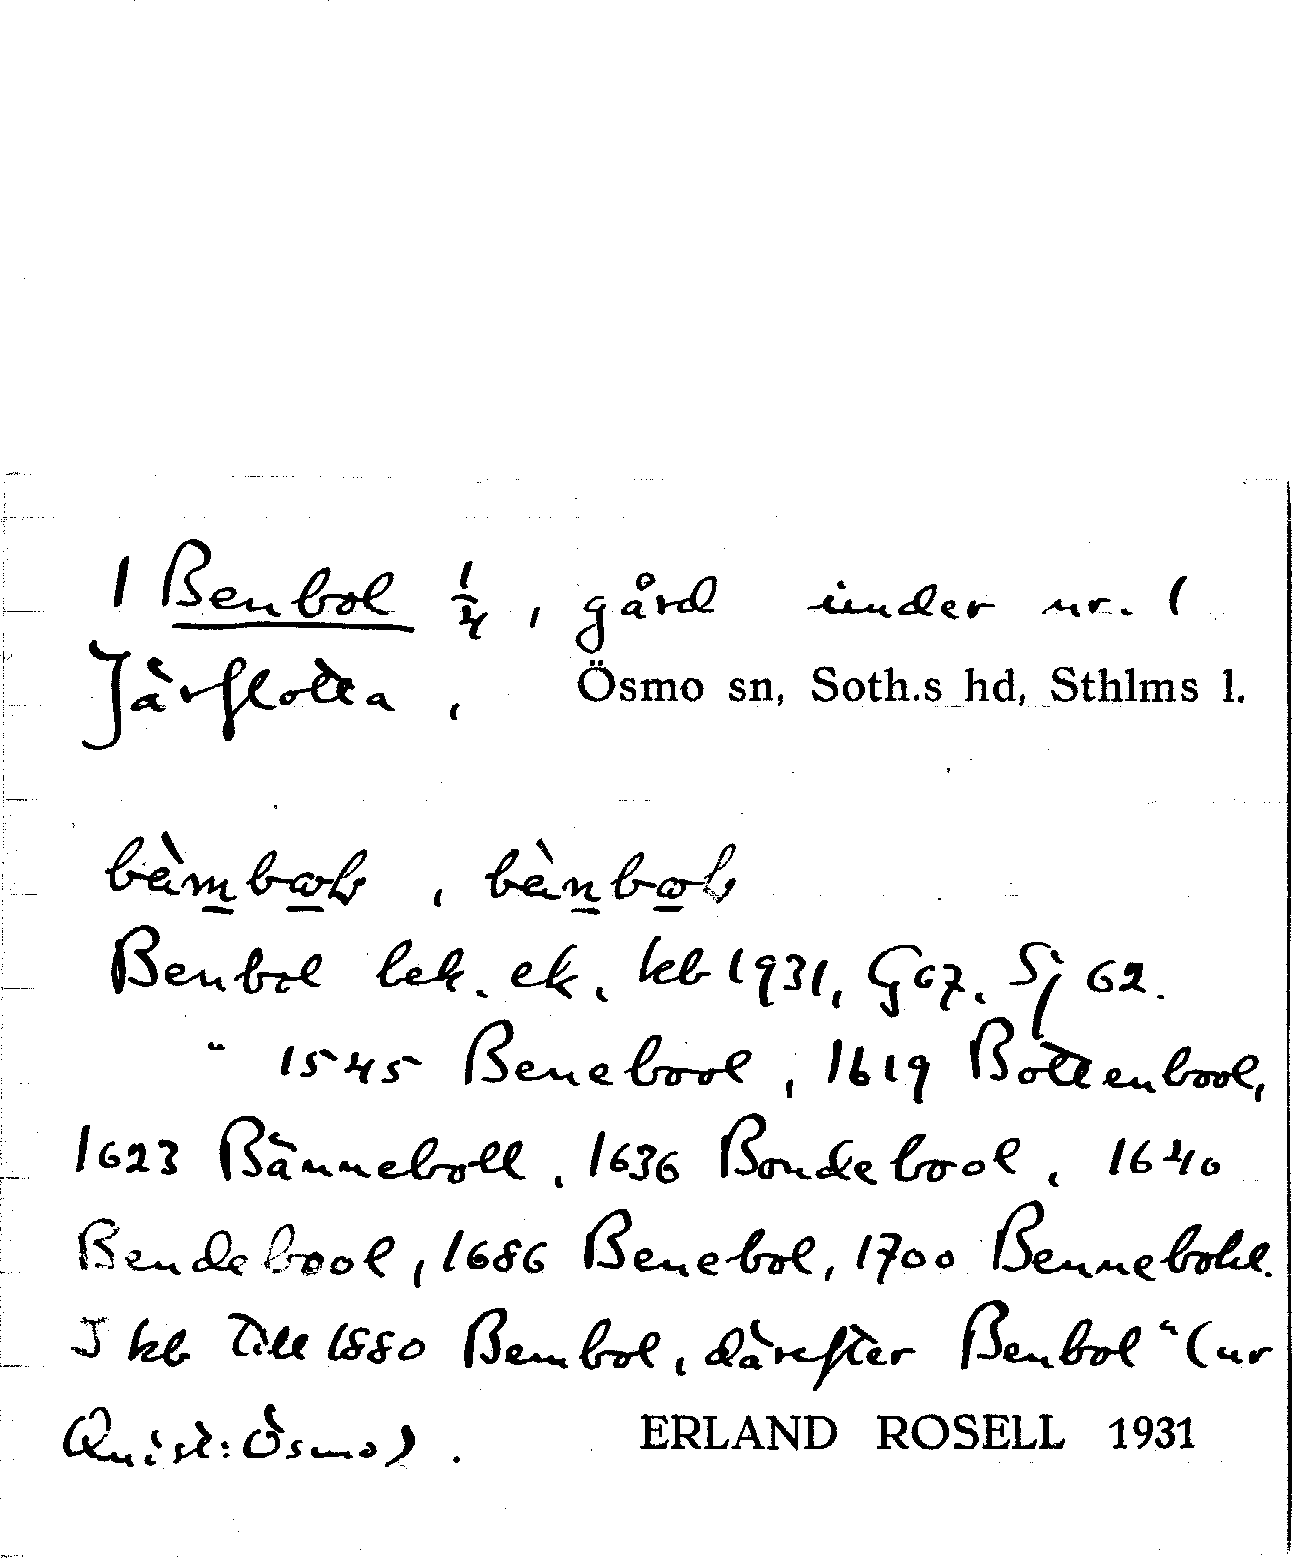 1 Benbol 1/4, gård under nr. 1
Järflotta, Ösmo sn, Soth.s hd, Sthlms l.
bèmbɷɫ, bènbɷɫ
Benbol lek. ek. kb 1931, G 67, Sj 62.
" 1545 Benebool, 1619 Bottenbool,
1623 Bänneboll, 1636 Bondebool, 1640
Bendebool, 1686 Benebol, 1700 Bennebohl.
I kb till 1880 Bembol, därefter Benbol" (ur
Quist: Ösmo). ERLAND ROSELL 1931